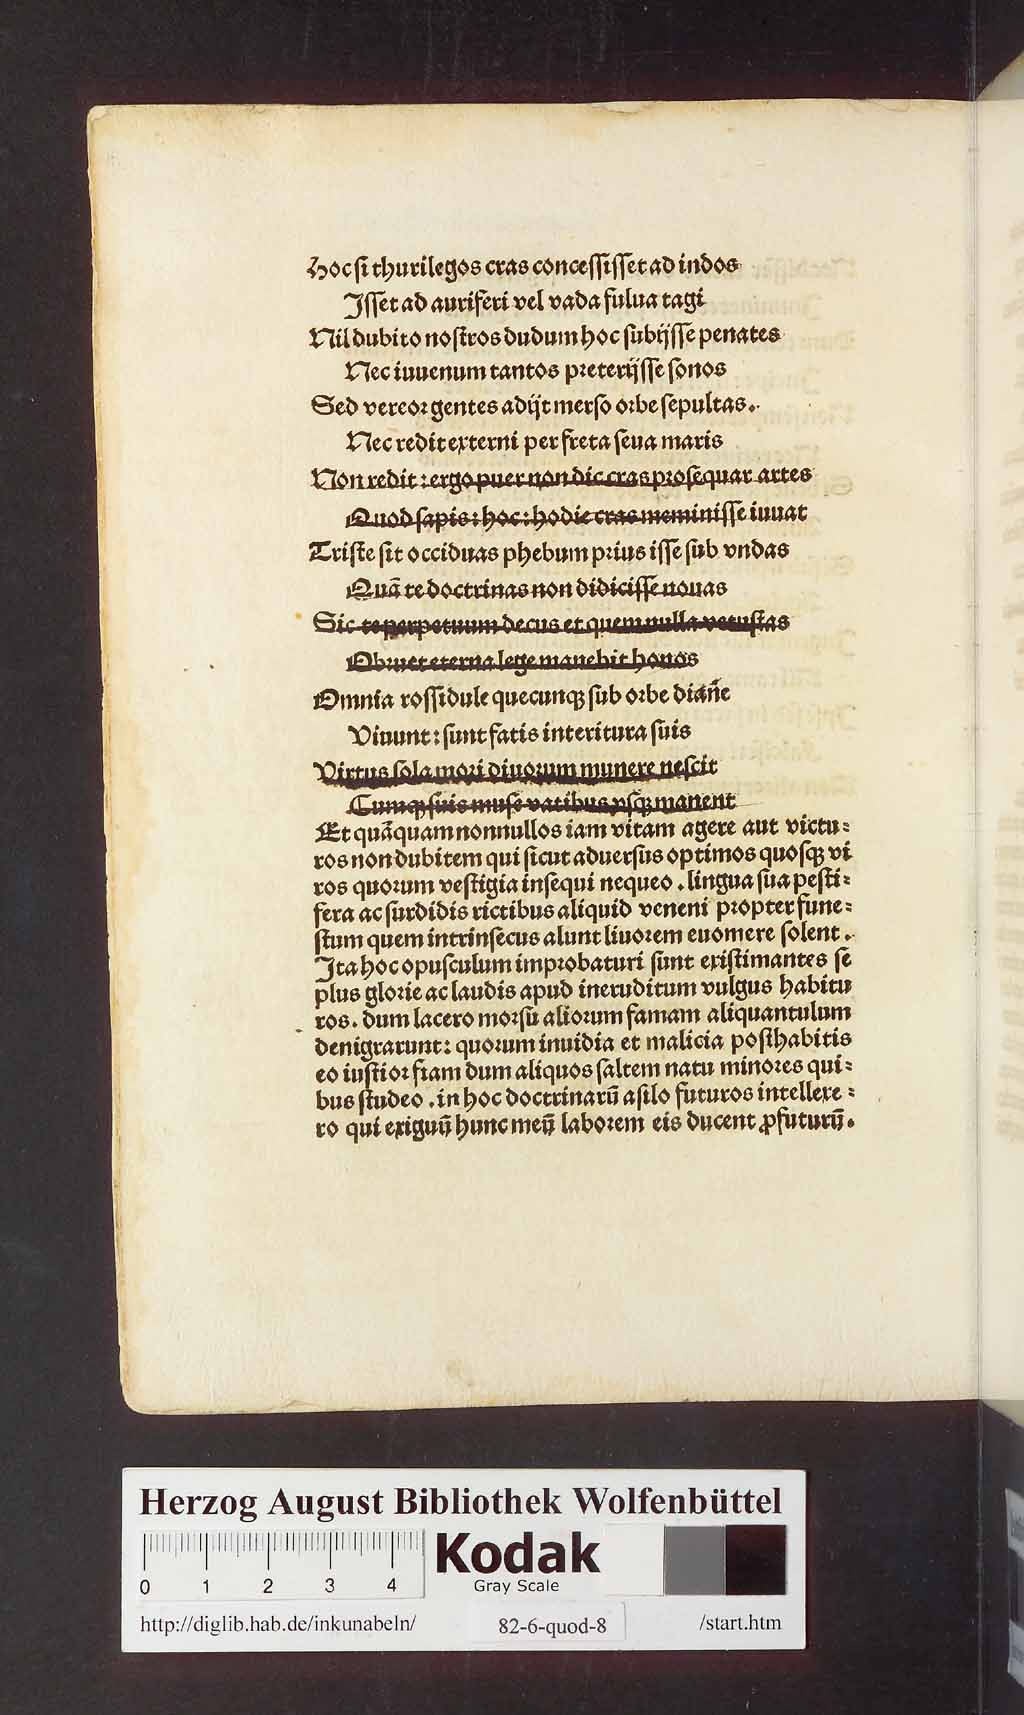 Hoc si thurilegos cras concessisset ad indos
Isset ad auriferi vel vada fulua tagi
Nil dubito nostros dudum hoc subijsse penates
Nec iuuenum tantos preterijsse sonos
Sed vereor gentes adijt merso orbe sepultas.
Nec redit externi per freta seua maris
Non redit: ergo puer non dic cras prosequar artes
Quod sapis: hoc: hodie cras meminisse iuuat
Triste sit occiduas phebum prius isse sub vndas
Quā te doctrinas non didicisse nouas
Sic te perpetuum decus et quem nulla vetustas
Obruet eterna lege manebit honos
Omnia rossidule quecunqꝫ sub orbe dianȩ
Viuunt: sunt fatis interitura suis
Virtus sola mori diuorum munere nescit
Cumqꝫ suis muse vatibus vsqꝫ manent
Et quāquam nonnullos iam vitam agere aut victu⸗
ros non dubitem qui sicut aduersus optimos quosqꝫ vi
ros quorum vestigia insequi nequeo. lingua sua pesti⸗
fera ac surdidis rictibus aliquid veneni propter fune⸗
stum quem intrinsecus alunt liuorem euomere solent.
Ita hoc opusculum improbaturi sunt existimantes se
plus glorie ac laudis apud ineruditum vulgus habitu
ros. dum lacero morsu aliorum famam aliquantulum
denigrarunt: quorum inuidia et malicia posthabitis
eo iustior fiam dum aliquos saltem natu minores qui⸗
bus studeo. in hoc doctrinarū asilo futuros intellexe⸗
ro qui exiguū hunc meū laborem eis ducent ꝓfuturū.
Herzog August Bibliothek Wolfenbüttel
0 1 2 3 4
Kodak
Gray Scale
http://diglib.hab.de/inkunabeln/ 82-6-quod-8 /start.htm